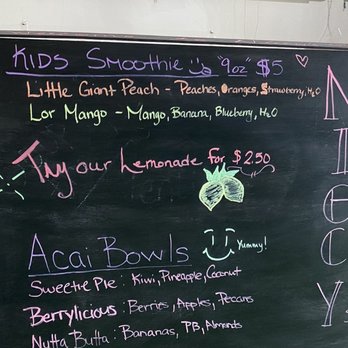 KIDS Smoothie "9oz" $5
Little Giant Peach - Peaches, Oranges, Strawberry, H2O
Lor Mango - Mango, Banana, Blueberry, H2O
Try our Lemonade for $2.50
Acai Bowls Yummy!
Sweetie Pie: Kiwi, Pineapple, Coconut
Berrylicious: Berries, Apples, Pecans
Nutta Butta: Bananas, PB, Almonds